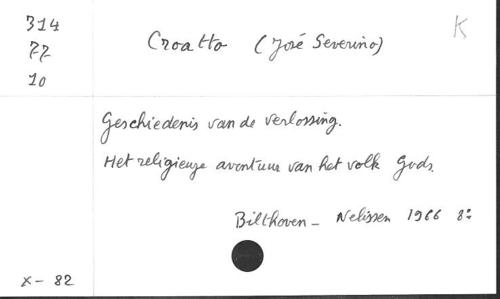 314
77
10
Croatto (José Severino)
K
Geschiedenis van de verlossing.
Het religieuze avontuur van het volk Gods.
Bilthoven - Nelissen 1966 8°
X - 82